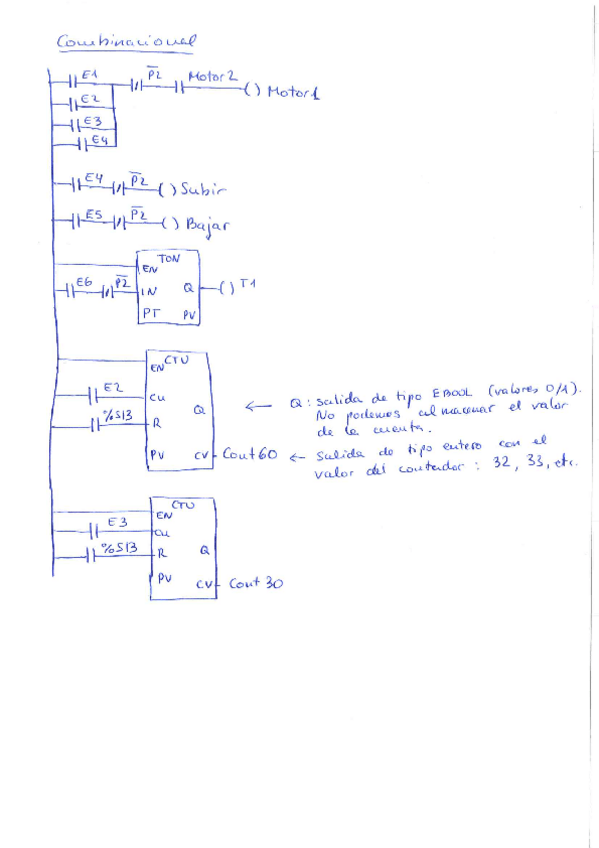 Combinacional
E1 P2 Motor2 ( ) Motor1
E2
E3
E4
E4 P2 ( ) Subir
E5 P2 ( ) Bajar
TON
EN
E6 P2 IN Q ( ) T1
PT PV
CTU
EN
E2 CU
Q ← Q: salida de tipo EBOOL (valores 0/1).
No podemos almacenar el valor
de la cuenta.
%S13 R
PV CV Cont60 ← Salida de tipo entero con el
valor del contador: 32, 33, etc.
CTU
EN
E3 CU
%S13 R Q
PV CV Cont30